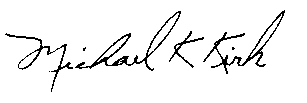 Michael K Kirk